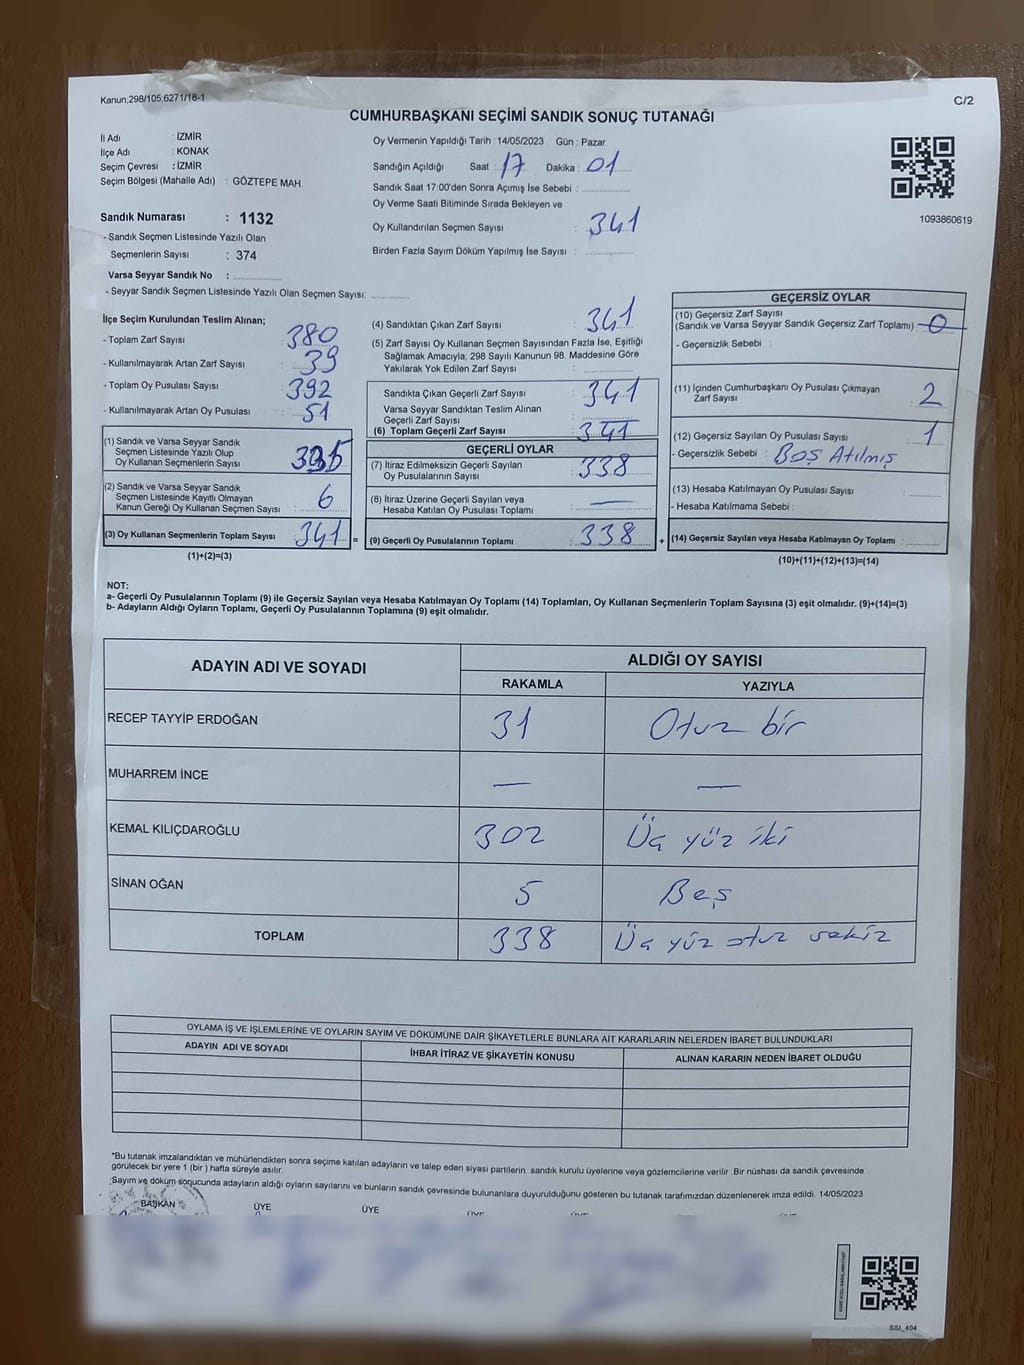 Kanun,298/105;6271/18-1
C/2
CUMHURBAŞKANI SEÇİMİ SANDIK SONUÇ TUTANAĞI
İl Adı : İZMİR
İlçe Adı : KONAK
Seçim Çevresi : İZMİR
Seçim Bölgesi (Mahalle Adı) : GÖZTEPE MAH.
Oy Vermenin Yapıldığı Tarih : 14/05/2023 Gün : Pazar
Sandığın Açıldığı Saat : 17 Dakika : 01
Sandık Saat 17:00'den Sonra Açımış İse Sebebi :
Oy Verme Saati Bitiminde Sırada Bekleyen ve
Oy Kullandırılan Seçmen Sayısı : 341
Birden Fazla Sayım Döküm Yapılmış İse Sayısı :
1093860619
Sandık Numarası : 1132
- Sandık Seçmen Listesinde Yazılı Olan
Seçmenlerin Sayısı : 374
Varsa Seyyar Sandık No :
- Seyyar Sandık Seçmen Listesinde Yazılı Olan Seçmen Sayısı:
İlçe Seçim Kurulundan Teslim Alınan;
- Toplam Zarf Sayısı : 380
- Kullanılmayarak Artan Zarf Sayısı : 39
- Toplam Oy Pusulası Sayısı : 392
- Kullanılmayarak Artan Oy Pusulası : 51
(1) Sandık ve Varsa Seyyar Sandık
Seçmen Listesinde Yazılı Olup
Oy Kullanan Seçmenlerin Sayısı : 335
(2) Sandık ve Varsa Seyyar Sandık
Seçmen Listesinde Kayıtlı Olmayan
Kanun Gereği Oy Kullanan Seçmen Sayısı : 6
(3) Oy Kullanan Seçmenlerin Toplam Sayısı : 341 =
(1)+(2)=(3)
(4) Sandıktan Çıkan Zarf Sayısı : 341
(5) Zarf Sayısı Oy Kullanan Seçmen Sayısından Fazla İse, Eşitliği
Sağlamak Amacıyla, 298 Sayılı Kanunun 98. Maddesine Göre
Yakılarak Yok Edilen Zarf Sayısı :
Sandıkta Çıkan Geçerli Zarf Sayısı : 341
Varsa Seyyar Sandıktan Teslim Alınan
Geçerli Zarf Sayısı :
(6) Toplam Geçerli Zarf Sayısı : 341
GEÇERLİ OYLAR
(7) İtiraz Edilmeksizin Geçerli Sayılan
Oy Pusulalarının Sayısı : 338
(8) İtiraz Üzerine Geçerli Sayılan veya
Hesaba Katılan Oy Pusulası Toplamı : —
(9) Geçerli Oy Pusulalarının Toplamı : 338 +
GEÇERSİZ OYLAR
(10) Geçersiz Zarf Sayısı
(Sandık ve Varsa Seyyar Sandık Geçersiz Zarf Toplamı) : 0
- Geçersizlik Sebebi :
(11) İçinden Cumhurbaşkanı Oy Pusulası Çıkmayan
Zarf Sayısı : 2
(12) Geçersiz Sayılan Oy Pusulası Sayısı : 1
- Geçersizlik Sebebi : Boş Atılmış
(13) Hesaba Katılmayan Oy Pusulası Sayısı :
- Hesaba Katılmama Sebebi :
(14) Geçersiz Sayılan veya Hesaba Katılmayan Oy Toplamı :
(10)+(11)+(12)+(13)=(14)
NOT:
a- Geçerli Oy Pusulalarının Toplamı (9) ile Geçersiz Sayılan veya Hesaba Katılmayan Oy Toplamı (14) Toplamları, Oy Kullanan Seçmenlerin Toplam Sayısına (3) eşit olmalıdır. (9)+(14)=(3)
b- Adayların Aldığı Oyların Toplamı, Geçerli Oy Pusulalarının Toplamına (9) eşit olmalıdır.
ADAYIN ADI VE SOYADI
ALDIĞI OY SAYISI
RAKAMLA YAZIYLA
RECEP TAYYİP ERDOĞAN 31 Otuz bir
MUHARREM İNCE — —
KEMAL KILIÇDAROĞLU 302 Üç yüz iki
SİNAN OĞAN 5 Beş
TOPLAM 338 Üç yüz otuz sekiz
OYLAMA İŞ VE İŞLEMLERİNE VE OYLARIN SAYIM VE DÖKÜMÜNE DAİR ŞİKAYETLERLE BUNLARA AİT KARARLARIN NELERDEN İBARET BULUNDUKLARI
ADAYIN ADI VE SOYADI
İHBAR İTİRAZ VE ŞİKAYETİN KONUSU
ALINAN KARARIN NEDEN İBARET OLDUĞU
*Bu tutanak imzalandıktan ve mühürlendikten sonra seçime katılan adayların ve talep eden siyasi partilerin sandık kurulu üyelerine veya gözlemcilerine verilir .Bir nüshası da sandık çevresinde
görülecek bir yere 1 (bir ) hafta süreyle asılır.
;Sayım ve döküm sonucunda adayların aldığı oyların sayılarını ve bunların sandık çevresinde bulunanlara duyurulduğunu gösteren bu tutanak tarafımızdan düzenlenerek imza edildi. 14/05/2023
BAŞKAN ÜYE ÜYE
SSI_404